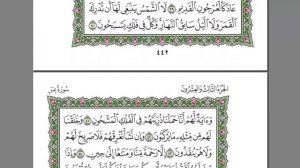 عَادَ كَالْعُرْجُونِ الْقَدِيمِ ٣٩ لَا الشَّمْسُ يَنْبَغِي لَهَا أَنْ تُدْرِكَ
الْقَمَرَ وَلَا اللَّيْلُ سَابِقُ النَّهَارِ وَكُلٌّ فِي فَلَكٍ يَسْبَحُونَ ٤٠
٤٤٢
الجزء الثالث والعشرون سورة يس
وَآيَةٌ لَهُمْ أَنَّا حَمَلْنَا ذُرِّيَّتَهُمْ فِي الْفُلْكِ الْمَشْحُونِ ٤١ وَخَلَقْنَا
لَهُمْ مِنْ مِثْلِهِ مَا يَرْكَبُونَ ٤٢ وَإِنْ نَشَأْ نُغْرِقْهُمْ فَلَا صَرِيخَ لَهُمْ
وَلَا هُمْ يُنْقَذُونَ ٤٣ إِلَّا رَحْمَةً مِنَّا وَمَتَاعًا إِلَى حِينٍ ٤٤ وَإِذَا